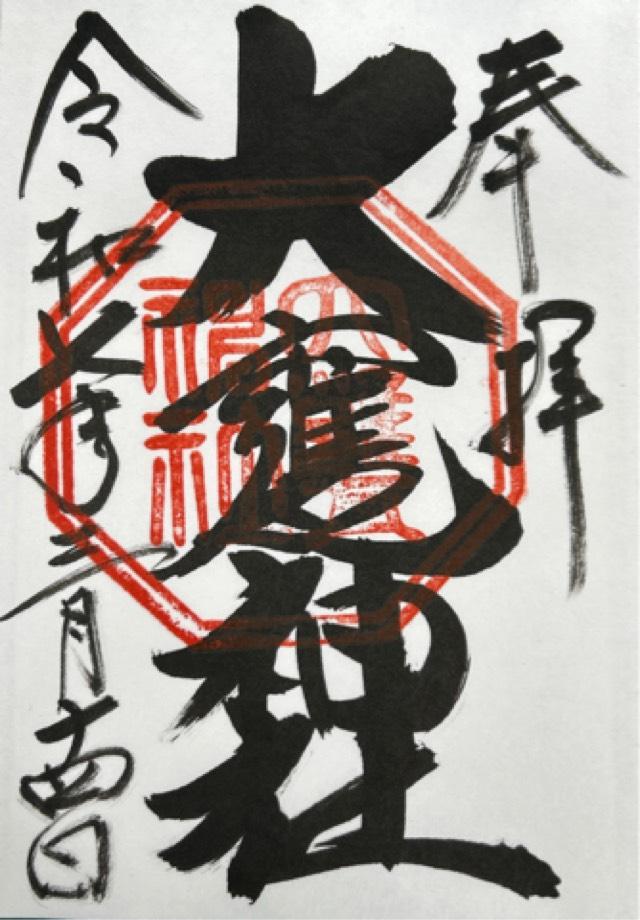 奉拝
大甕神社
大甕
神社
令和七年三月十四日